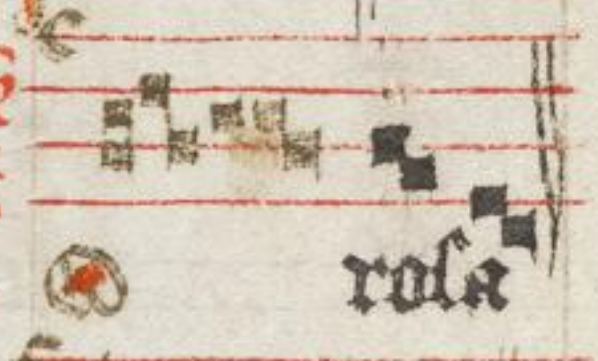 roſa